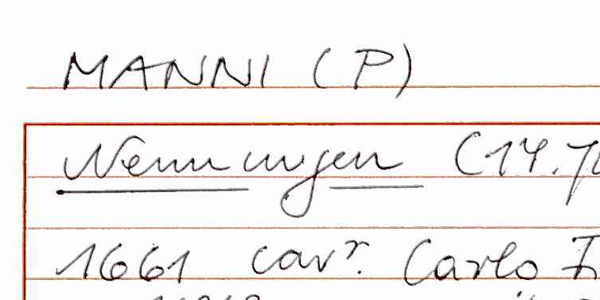 MANNI (P)
Nennungen (14.
1661 cav.r Carlo